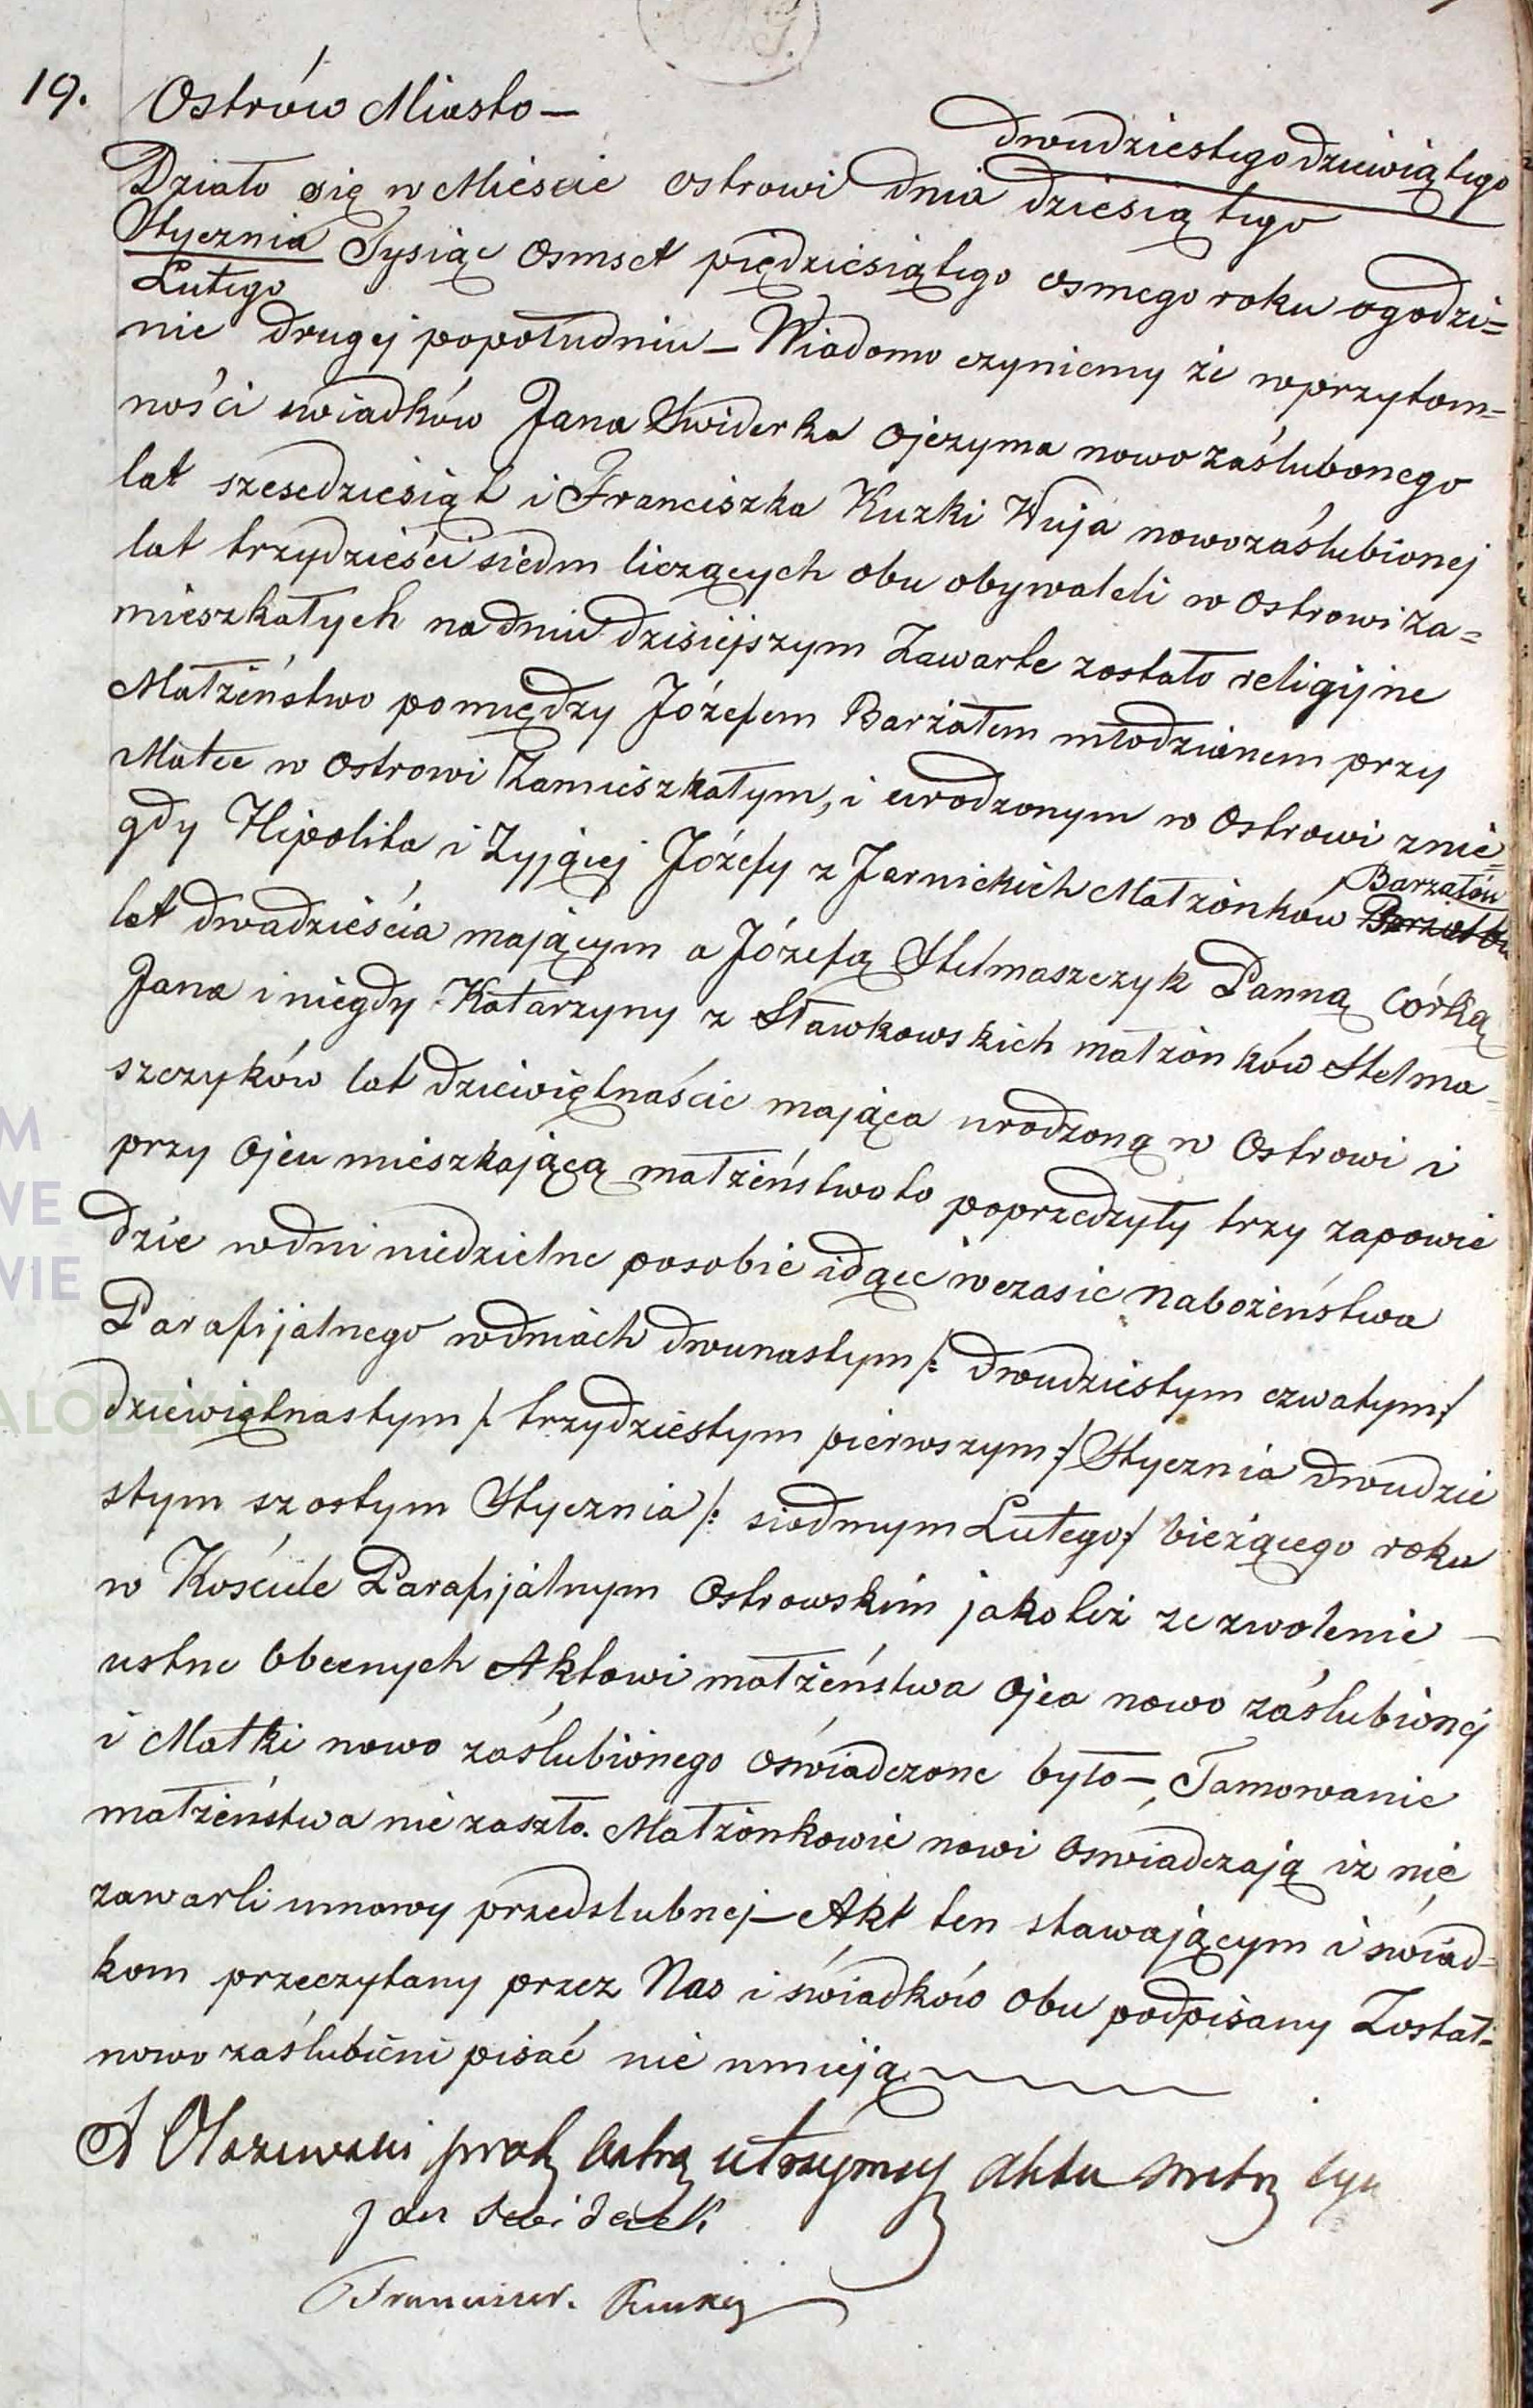 19. Ostrów Miasto —
dwudziestego dziewiątego
Działo się w Mieście ostrowi dnia dziesiątego
Stycznia
Lutego Tysiąc Osmset piędziesiątego osmego roku ogodzi=
nie drugej popołudniu — Wiadomo czyniemy że wprzytom=
ności swiadków Jana Swiderka Ojczyma nowo zaślubonego
lat szescdziesiąt i Franciszka Kuzki Wuja nowozaślubionej
lat trzydzieści siedm liczących obu obywateli w Ostrowi za=
mieszkałych na dniu dzisiejszym Zawarte zostało religijne
Małżeństwo pomiędzy Józefem Barżałem młodzianem przy
Matce w Ostrowi Zamieszkałym, i urodzonym w Ostrowi z nie=
gdy Hipolita i Zyjącej Józefy z Jarnickich Małżonków Barzałów
lat dwadzieścia mającym a Józefą Stelmaszczyk Panną Córką
Jana i niegdy Katarzyny z Sławkowskich małżonków Stelma=
szczyków lat dziewiętnaście mająca urodzoną w Ostrowi i
przy Ojcu mieszkającą małżeństwo to poprzedzyły trzy zapowie
dzie wdni niedzielne posobie idące wczasie Nabożeństwa
Parafijalnego wdniach dwunastym /: dwudziestym czwatym :/
dziewiętnastym /: trzydziestym pierwszym :/ Stycznia dwudzie
stym szostym Stycznia /: siodmym Lutego :/ bieżącego roku
w Kościele Parafijalnym Ostrowskim jako też zezwolenie —
ustne Obecnych Aktowi małżeństwa Ojca nowo zaślubionej
i Matki nowo zaślubionego Oświadczone było —, Tamowanie
małżeństwa nie zaszło. Małżonkowie nowi Oswiadczają iż nie
zawarli umowy przedslubnej — Akt ten stawającym i świad=
kom przeczytany przez Nas i świadków Obu podpisany Został=
nowo zaślubieni pisać nie umieją
A Olszewski utrzymuy
Jan Swiderek
Franciszek Kuzkę